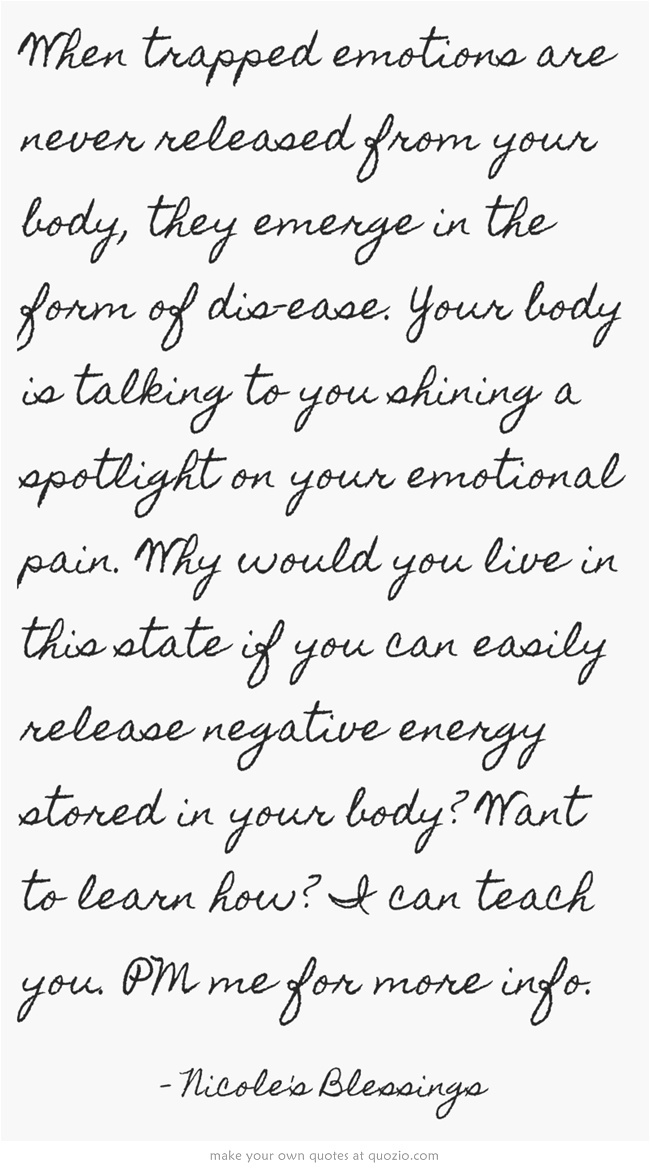 When trapped emotions are
never released from your
body, they emerge in the
form of dis-ease. Your body
is talking to you shining a
spotlight on your emotional
pain. Why would you live in
this state if you can easily
release negative energy
stored in your body? Want
to learn how? I can teach
you. PM me for more info.
- Nicole's Blessings
make your own quotes at quozio.com